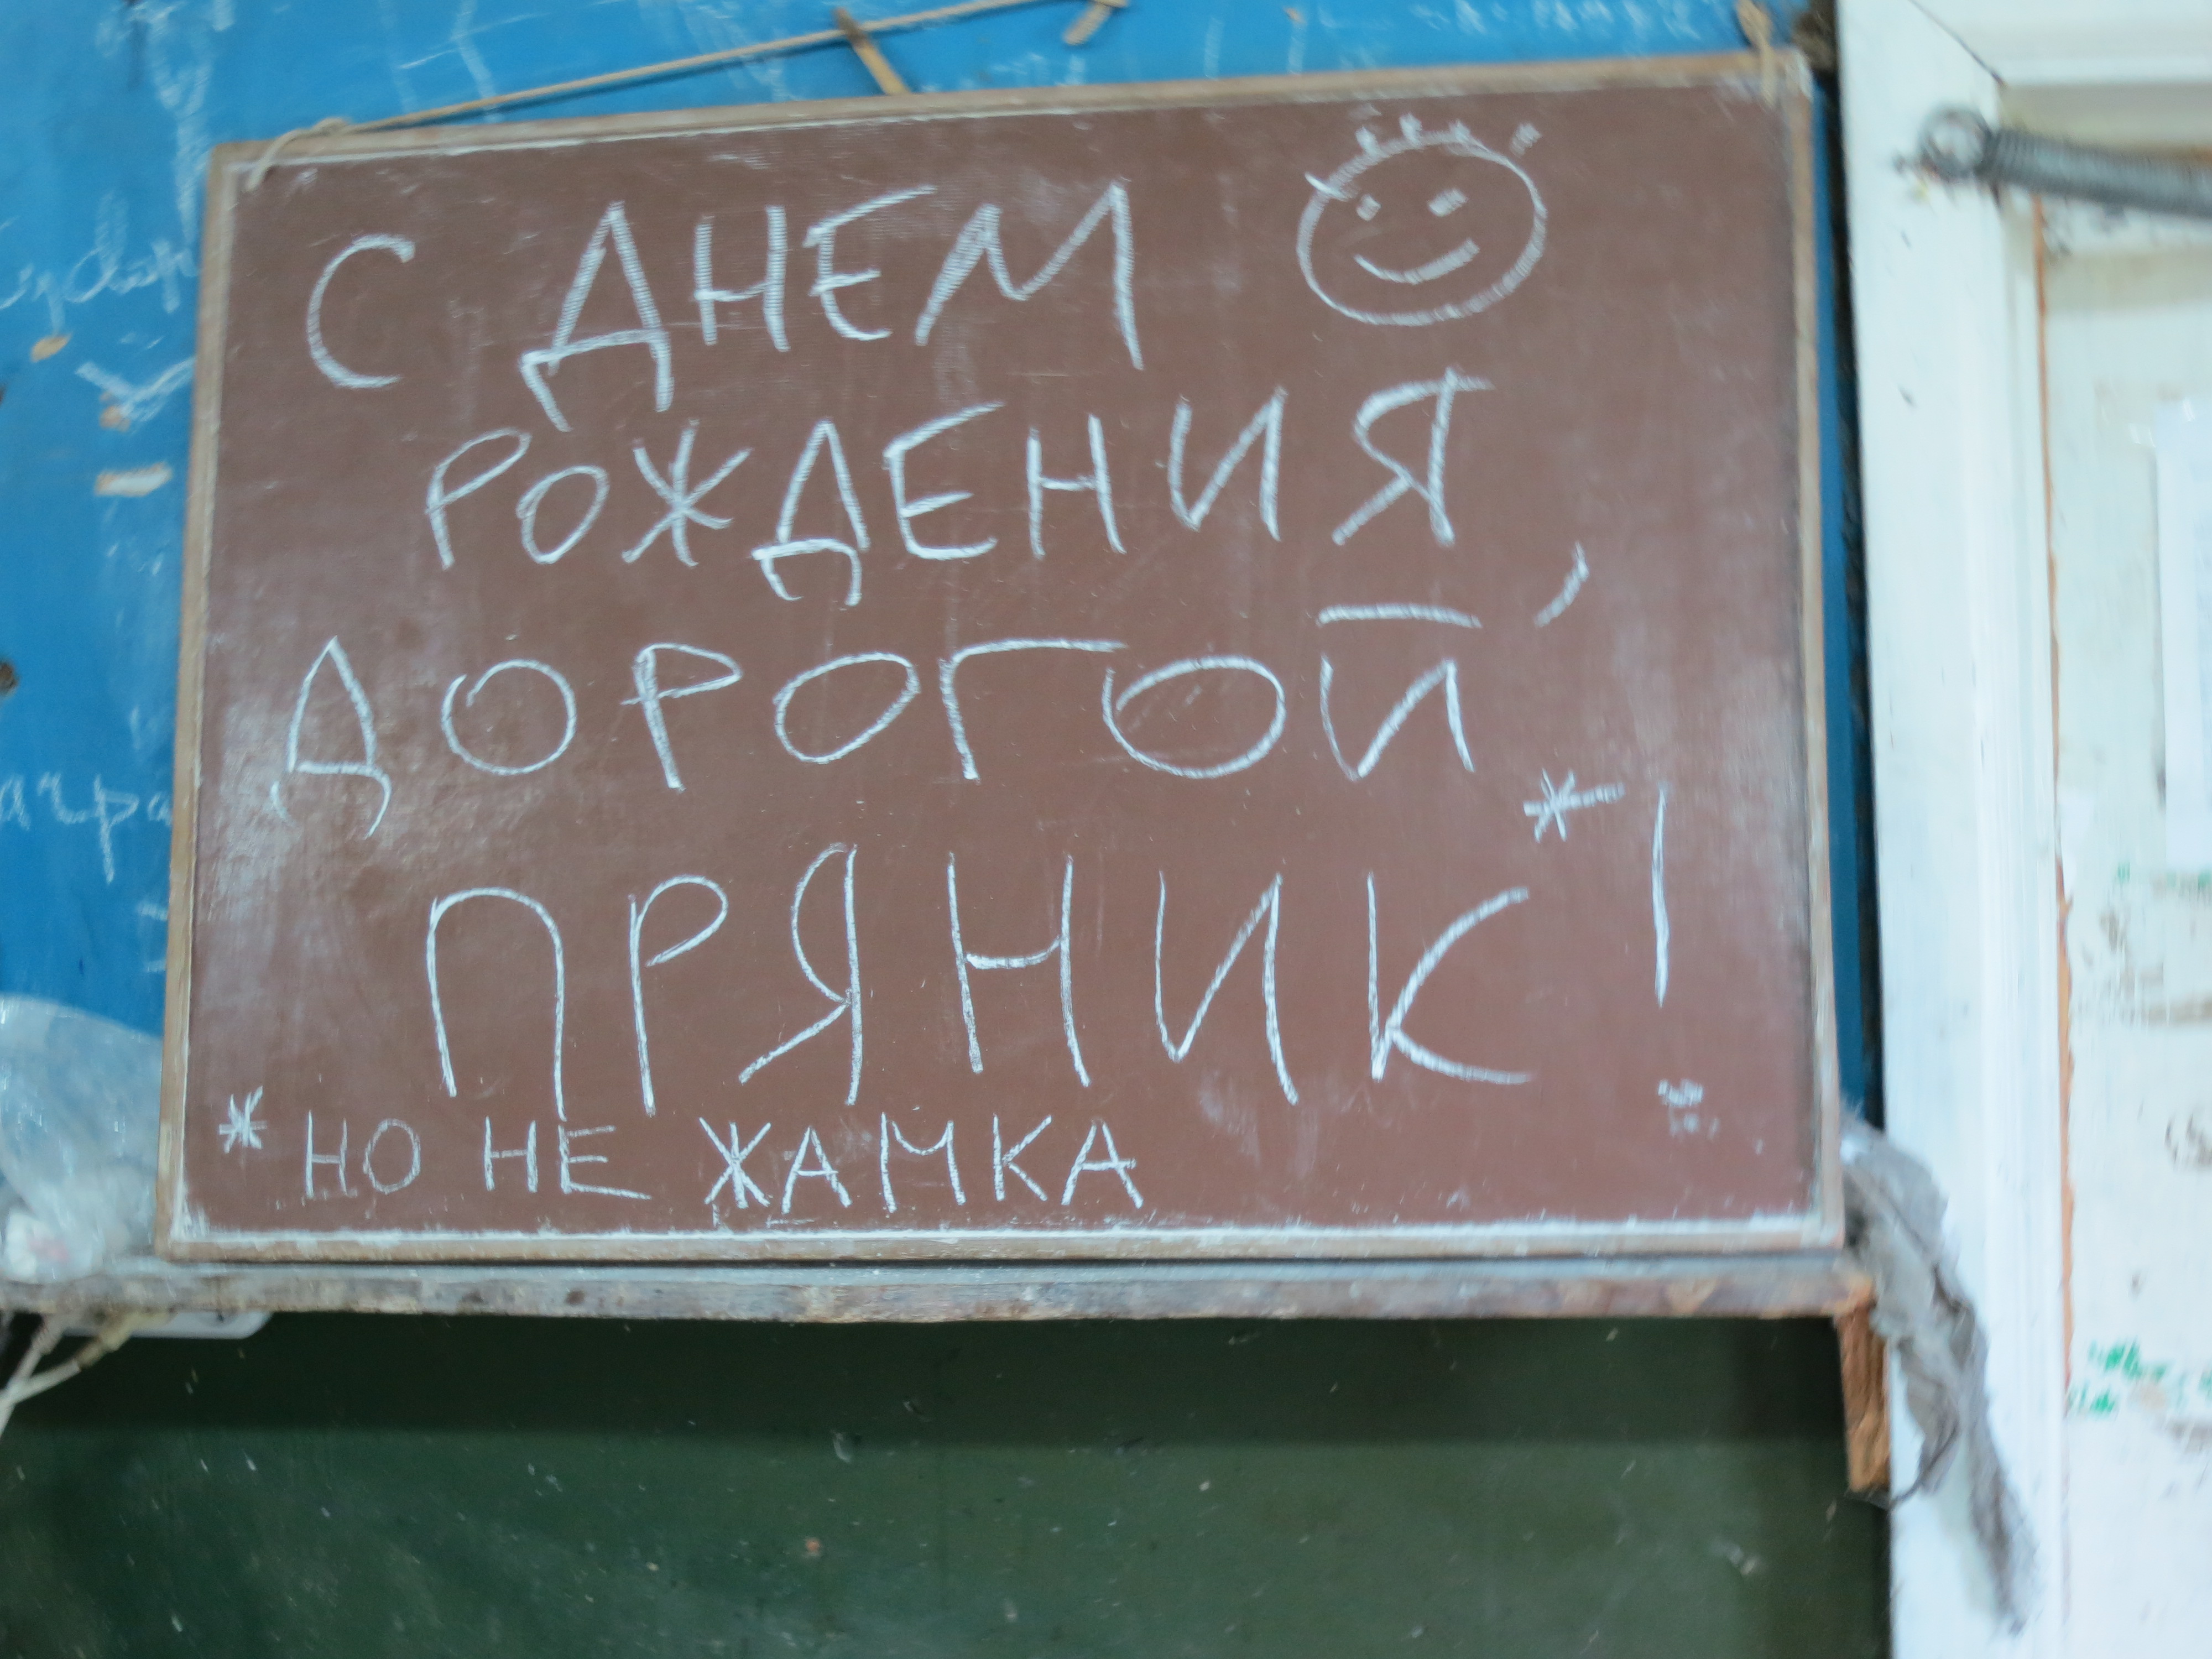 С ДНЕМ
РОЖДЕНИЯ,
ДОРОГОЙ
ПРЯНИК*!
*НО НЕ ЖАМКА